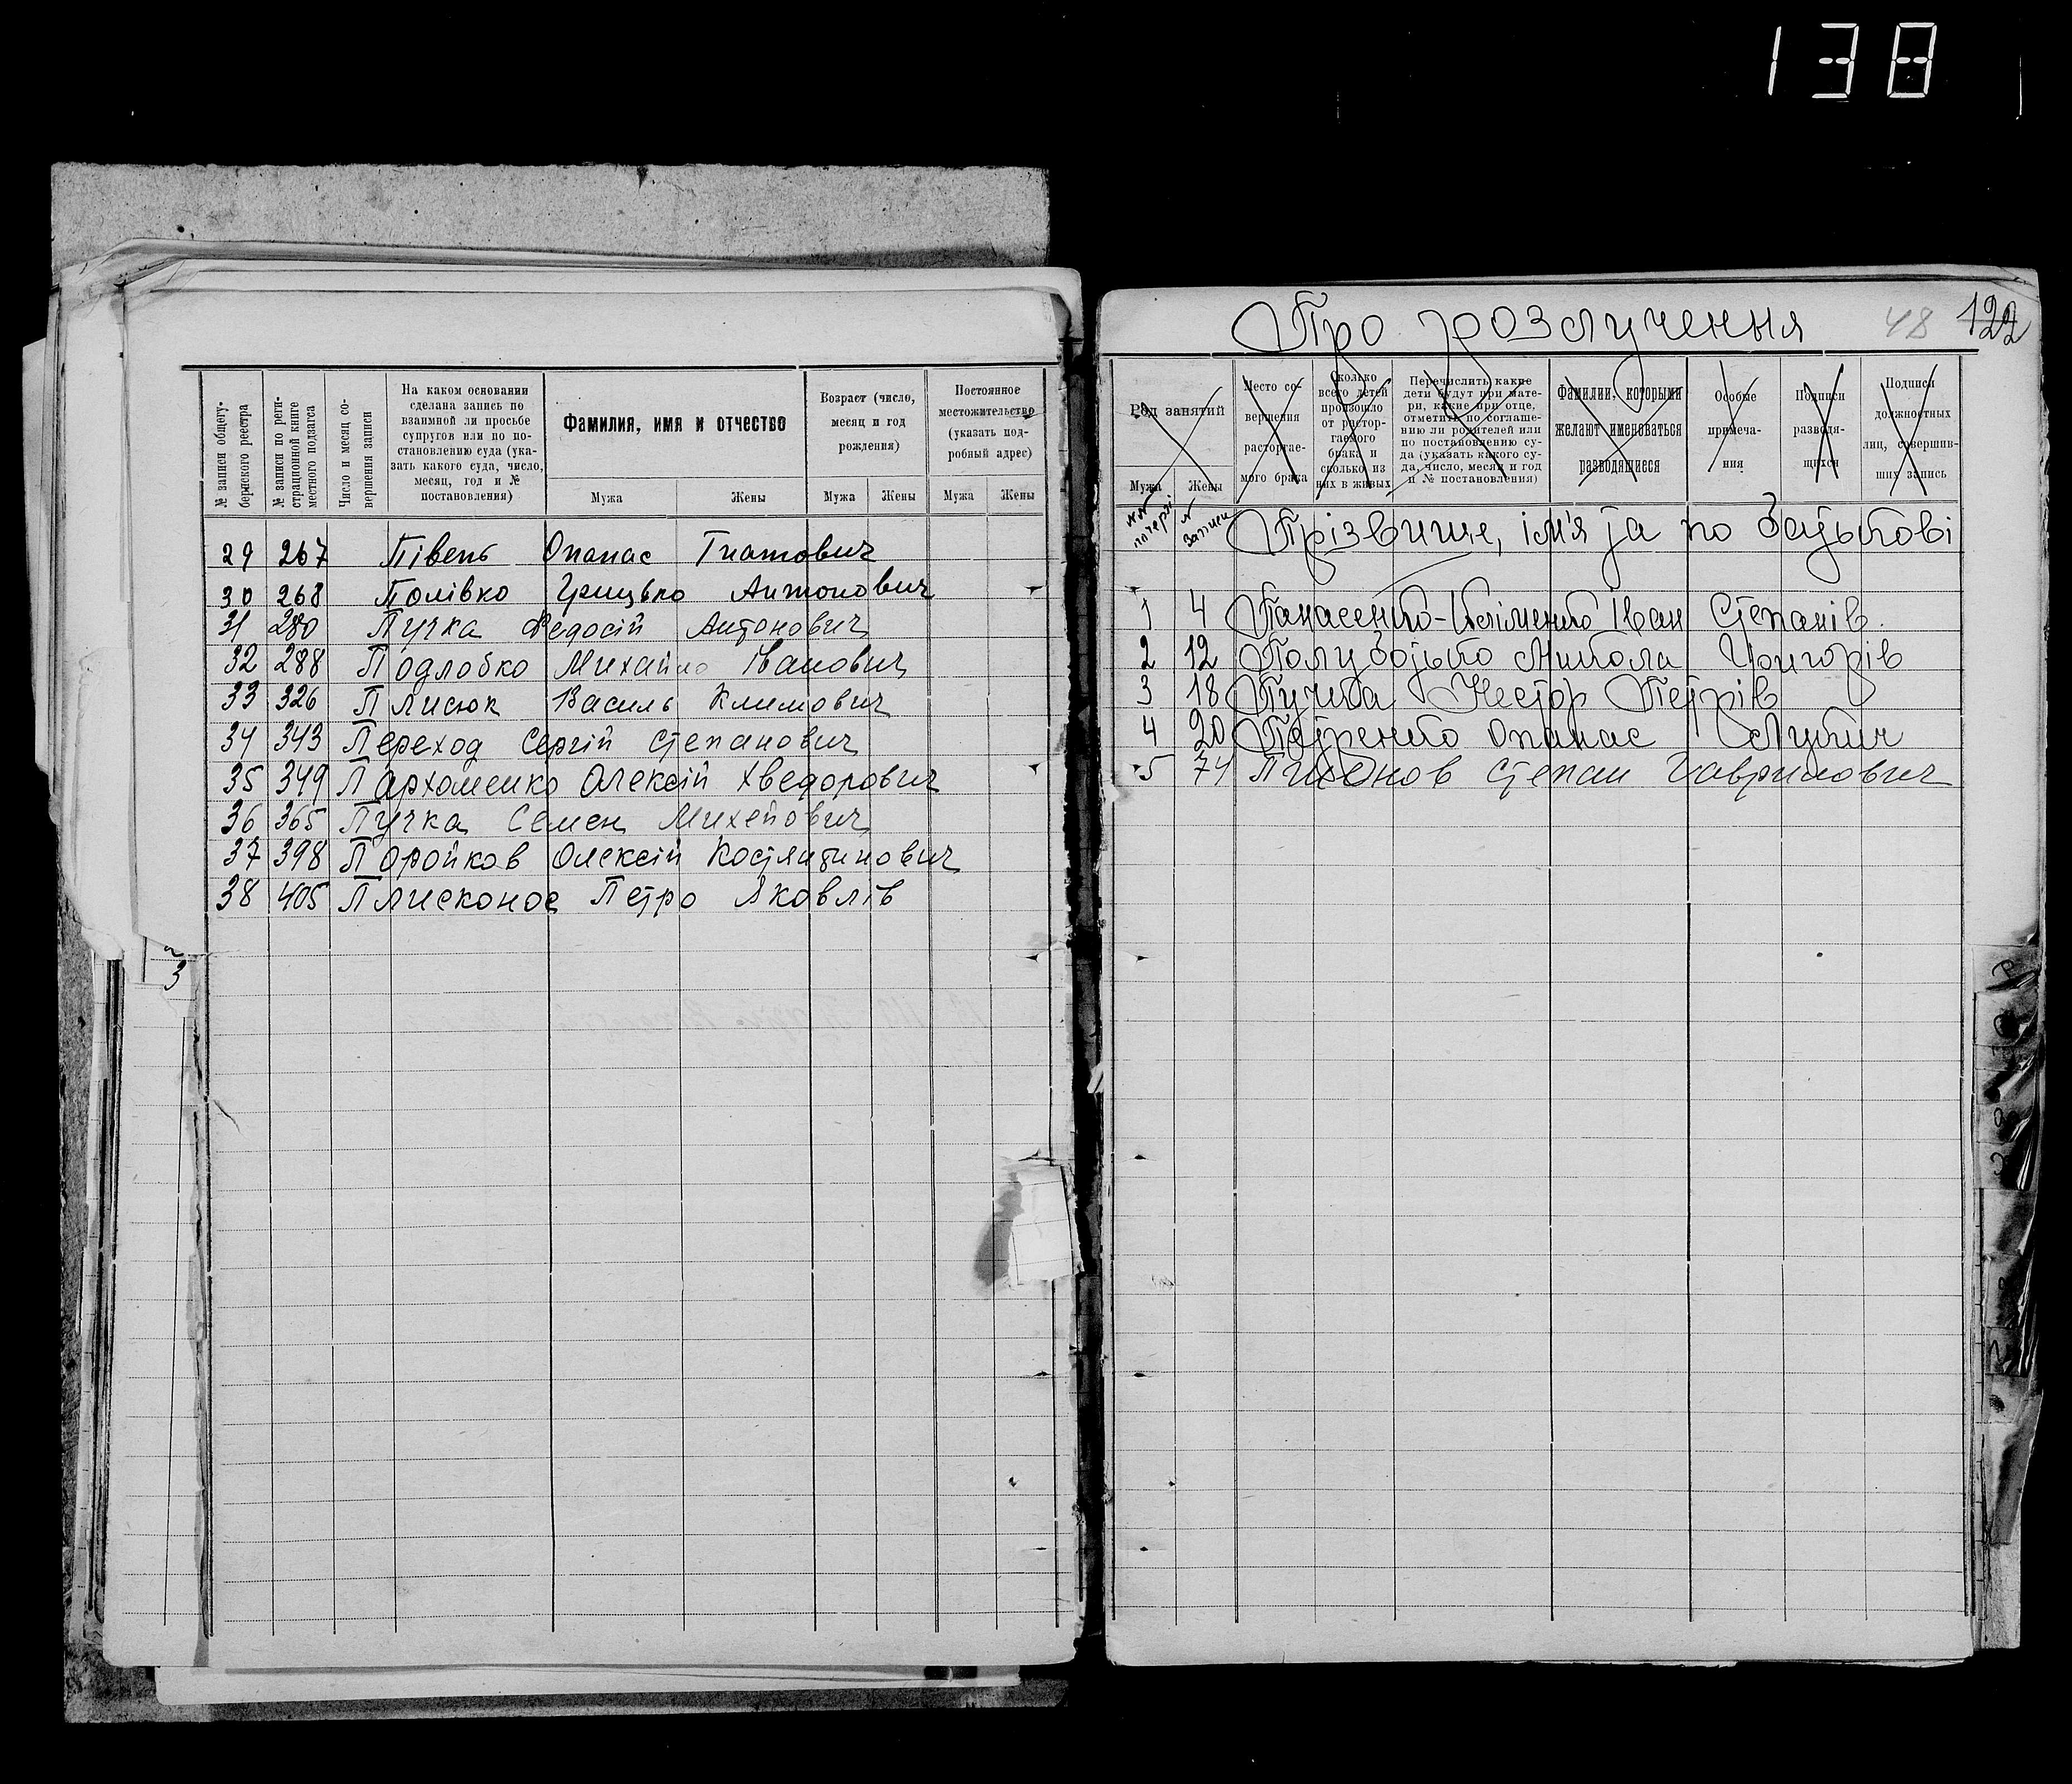 138
№ записи общегу-
бернского реестра
№ записи по реги-
страционной книге
местного подзагса
Число и месяц со-
вершения записи
На каком основании
сделана запись по
взаимной ли просьбе
супругов или по по-
становлению суда (ука-
зать какого суда, число,
месяц, год и №
постановления)
Фамилия, имя и отчество
Мужа Жены
Возраст (число,
месяц и год
рождения)
Мужа Жены
Постоянное
местожительство
(указать под-
робный адрес)
Мужа Жены
29 267 Півень Опанас Гнатович
30 268 Полівко Грицько Антонович
31 280 Пучка Федосій Антонович
32 288 Подлобко Михайло Іванович
33 326 Плисюк Василь Климович
34 343 Переход Сергій Степанович
35 349 Пархоменко Олексій Хведорович
36 365 Пучка Семен Михейович
37 398 Поройков Олексій Костянтинович
38 405 Плисконос Петро Яковлів
3
Про розлучення 48 122
Род занятий
Мужа Жены
Место со-
вершения
расторгае-
мого брака
Сколько
всего детей
произошло
от растор-
гаемого
брака и
сколько из
них в живых
Перечислить какие
дети будут при мате-
ри, какие при отце,
отметить по соглаше-
нию ли родителей или
по постановлению су-
да (указать какого су-
да, число, месяц и год
и № постановления)
Фамилии, которыми
желают именоваться
разводящиеся
Особые
примеча-
ния
Подписи
разводя-
щихся
Подписи
должностных
лиц, совершив-
ших запись
Прізвище, ім'я та по батькові
1 4 Панасенко-Кліменко Іван Степанів
2 12 Полубот́ько Микола Григорів
3 18 Пучка Нестор Петрів
4 20 Петренко Опанас Лукич
5 74 Пихонов Степан Гаврилович